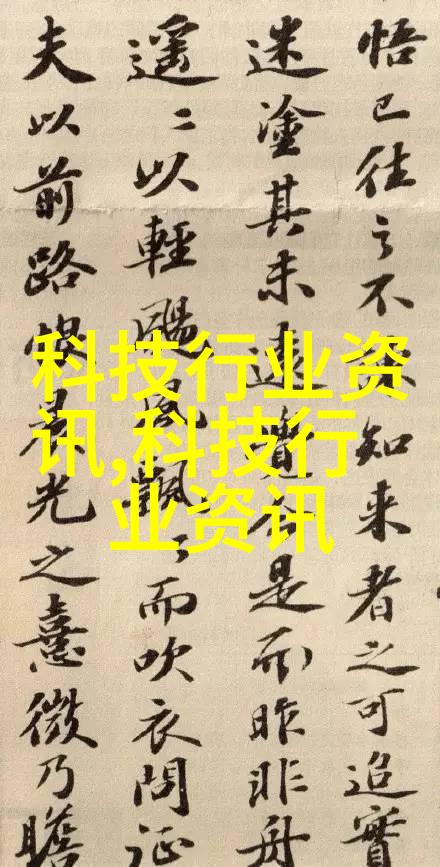 悟已往之不知来者之可追實
迷塗其未遠覺今是而昨非舟
遥〻以輕颺風飄〻而吹衣問征
夫以前路恨晨光之熹微乃瞻
科技行业资
讯,科技行
业资讯